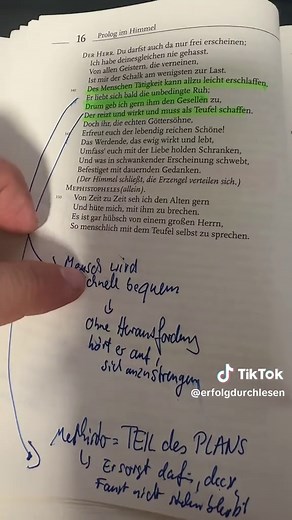 16 Prolog im Himmel
DER HERR. Du darfst auch da nur frei erscheinen;
Ich habe deinesgleichen nie gehasst.
Von allen Geistern, die verneinen,
Ist mir der Schalk am wenigsten zur Last.
340 Des Menschen Tätigkeit kann allzu leicht erschlaffen,
Er liebt sich bald die unbedingte Ruh;
Drum geb ich gern ihm den Gesellen zu,
Der reizt und wirkt und muss als Teufel schaffen.
Doch ihr, die echten Göttersöhne,
Erfreut euch der lebendig reichen Schöne!
Das Werdende, das ewig wirkt und lebt,
Umfass' euch mit der Liebe holden Schranken,
Und was in schwankender Erscheinung schwebt,
Befestiget mit dauernden Gedanken.
(Der Himmel schließt, die Erzengel verteilen sich.)
MEPHISTOPHELES (allein).
350 Von Zeit zu Zeit seh ich den Alten gern
Und hüte mich, mit ihm zu brechen.
Es ist gar hübsch von einem großen Herrn,
So menschlich mit dem Teufel selbst zu sprechen.
↳ Mensch wird
schnell bequem
↓
ohne Herausforderung
hört er auf,
sich anzustrengen
TikTok
@erfolgdurchlesen
Mephisto = TEIL des PLANS
↳ Er sorgt dafür, dass
Faust nicht stehen bleibt